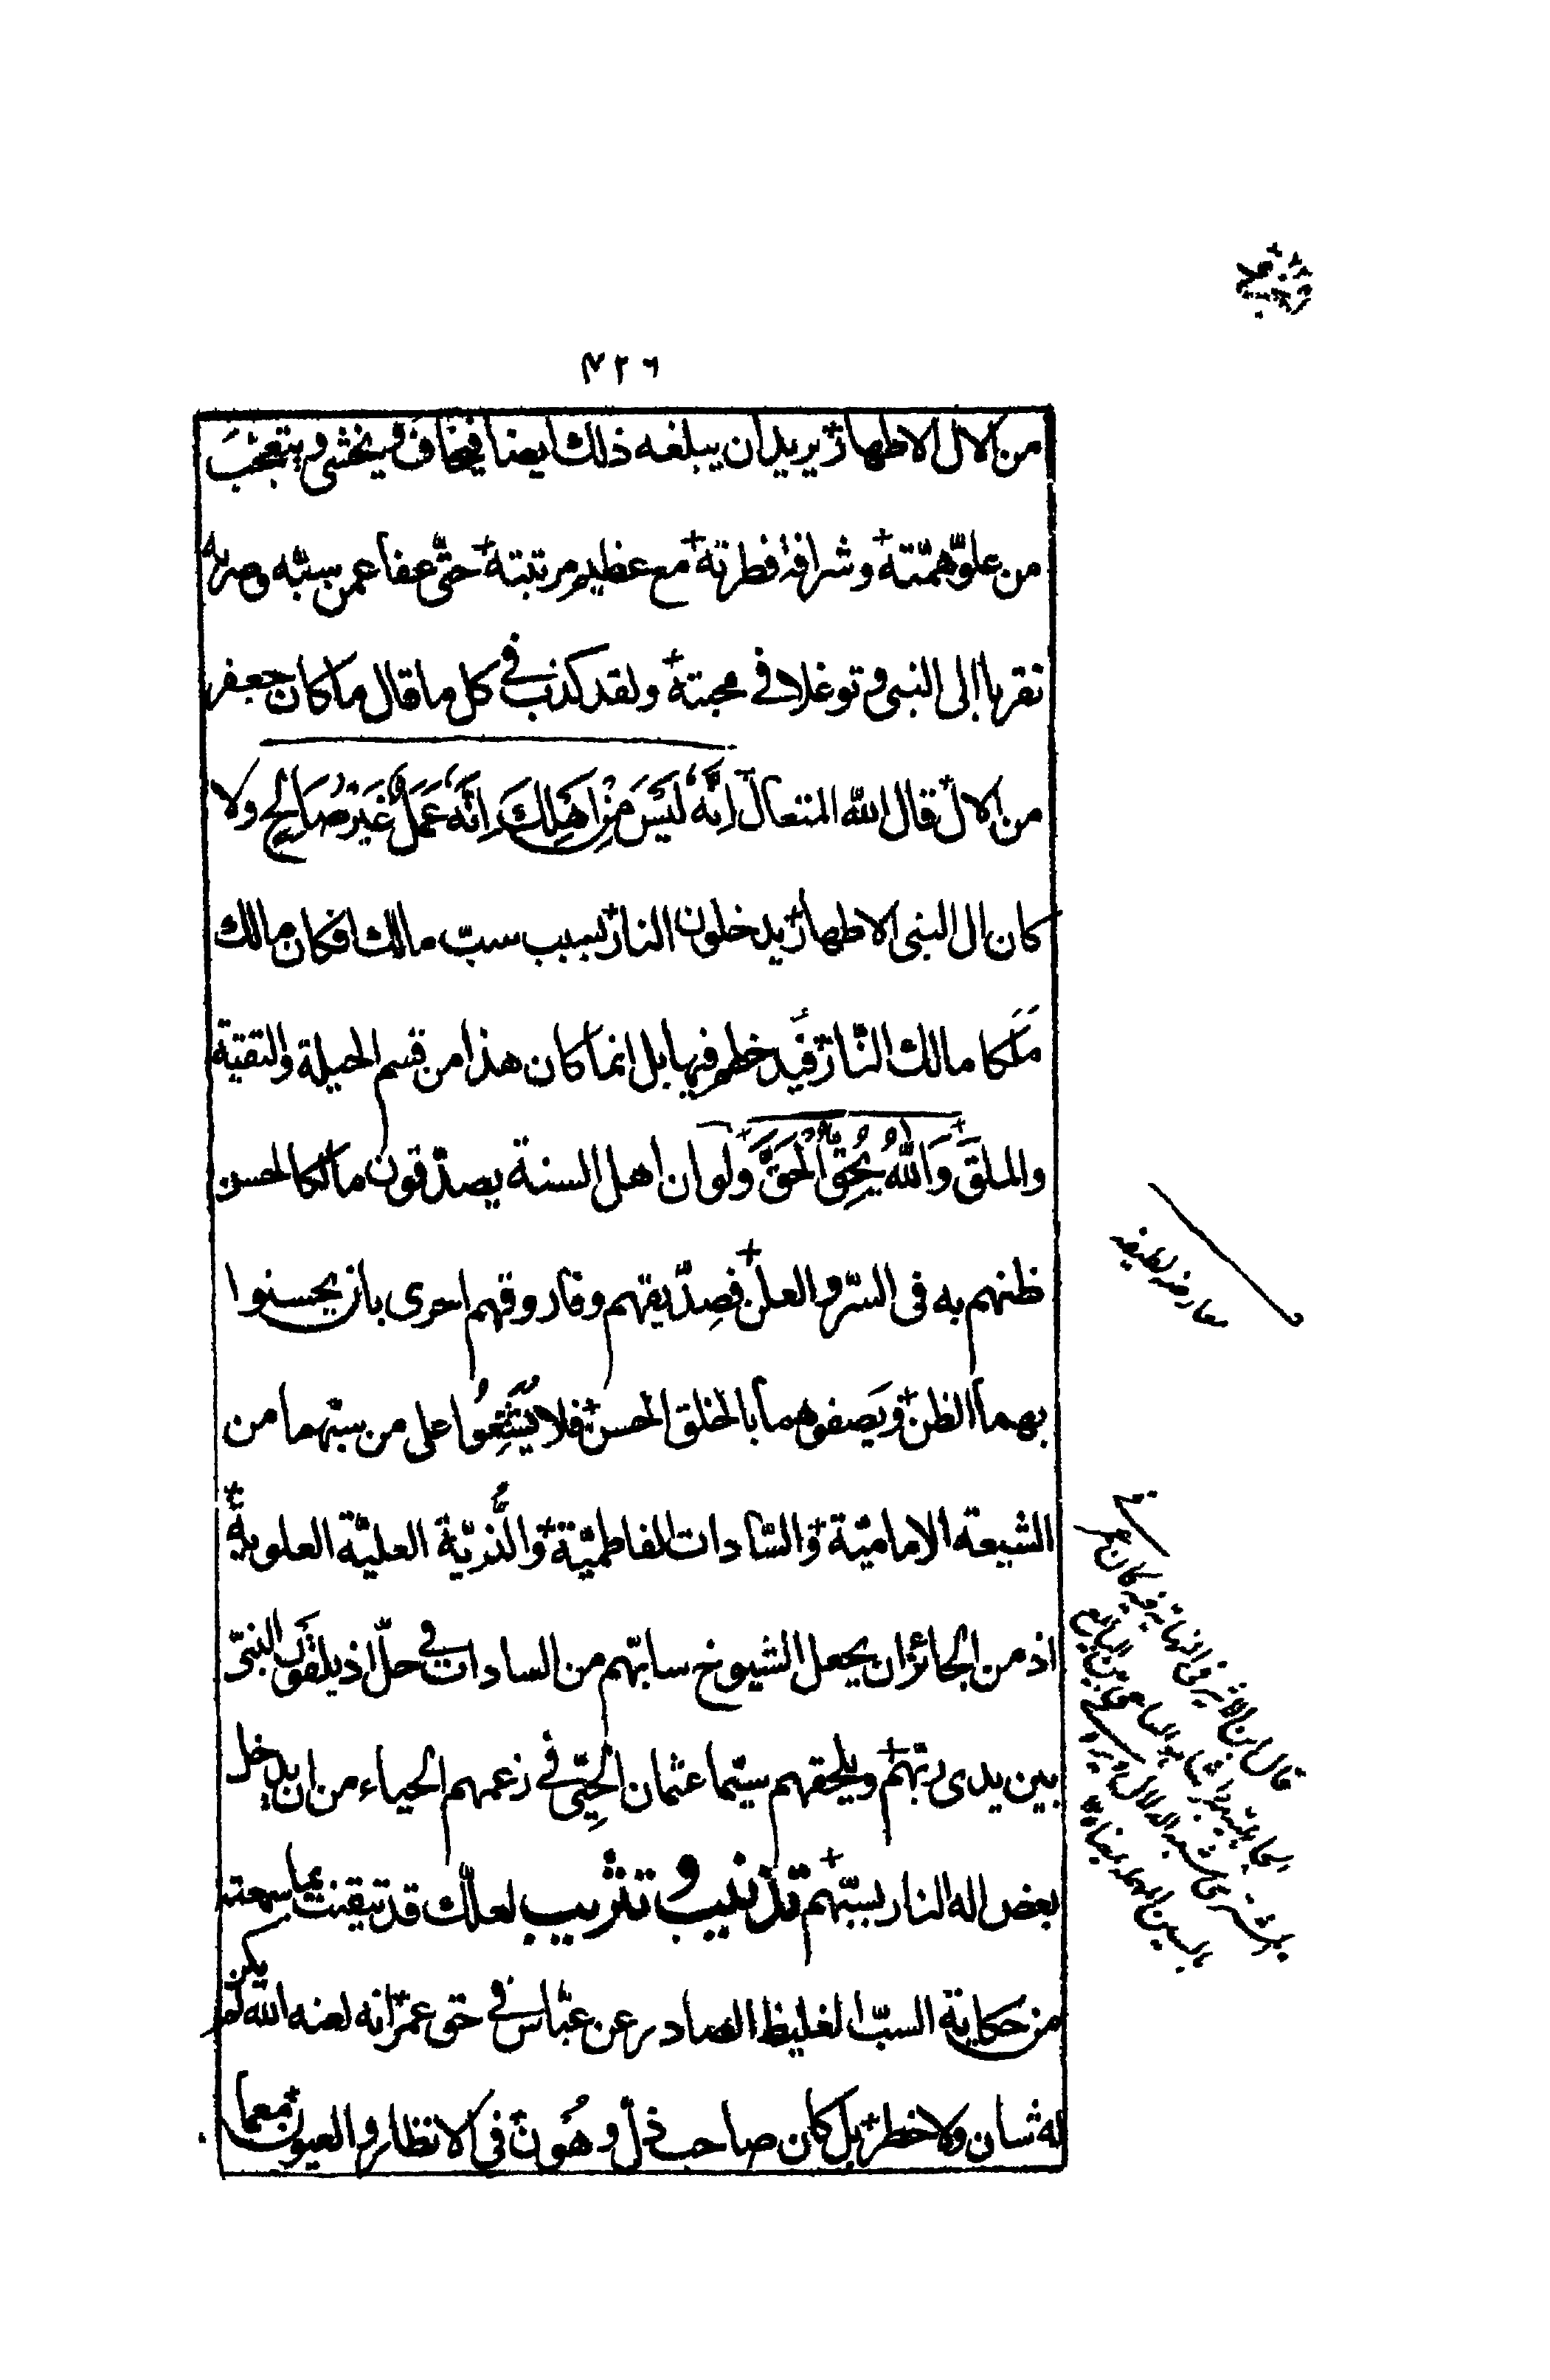 ٤٢٦
من الال الاطهار يريد ان يبلغه ذلك ايضا فيخاف ويخشى ويتعجب
من علوّ همّته وشرافة فطرته مع عظيم مرتبته حتّى عفا عمن سبّه وضربه
تقربا الى النبى وتوغلا فى محبته ولقد كذب فى كل ما قال ما كان جعفر
من الال قال الله المتعال اِنَّهُ لَيْسَ مِنْ اَهْلِكَ اِنَّهُ عَمَلٌ غَيْرُ صَالِحٍ ولا
كان ال النبى الاطهار يدخلون النار بسبب سبّ مالك افكان مالك
مَلَكا مالك النّار فيدخلهم فيها بل انما كان هذا من قسم الحيلة والتقيّة
والملق وَاللّهُ يُحِقُّ الْحَقَّ ولو ان اهل السنة يصدّقون مالكا لحسن
ظنهم به فى السرّ والعلن فصِدّيقهم وفاروقهم احرى بان يحسنوا
بهما الظن ويَصفوهما بالخلق الحسن فلا يُشَنِّعُوا على من سبّهما من
الشيعة الاماميّة والسّادات الفاطميّة والذُّرّيّة العليّة العلويّة
اذ من الجائز ان يجعل الشيوخ سابّهم من السادات فى حلّ اذ يلقَون النبىّ
بين يدى ربّهم ويلحقهم سيّما عثمان الحَيِىّ فى زعمهم الحياء من ان يدخل
بعض اله النار بسبّهم تذنيب وتثريب لعلّك قد تيقنت بما سمعته
من حكاية السبّ الغليظ الصادر عن عبّاس فى حق عمر انه لعنه الله لم يكن
له شان ولا خطر بل كان صاحب ذلّ وهُون فى الانظار والعيون معما
معارضه لطيفه
قال ابن الاثير فى النهاية فيه كان عمر